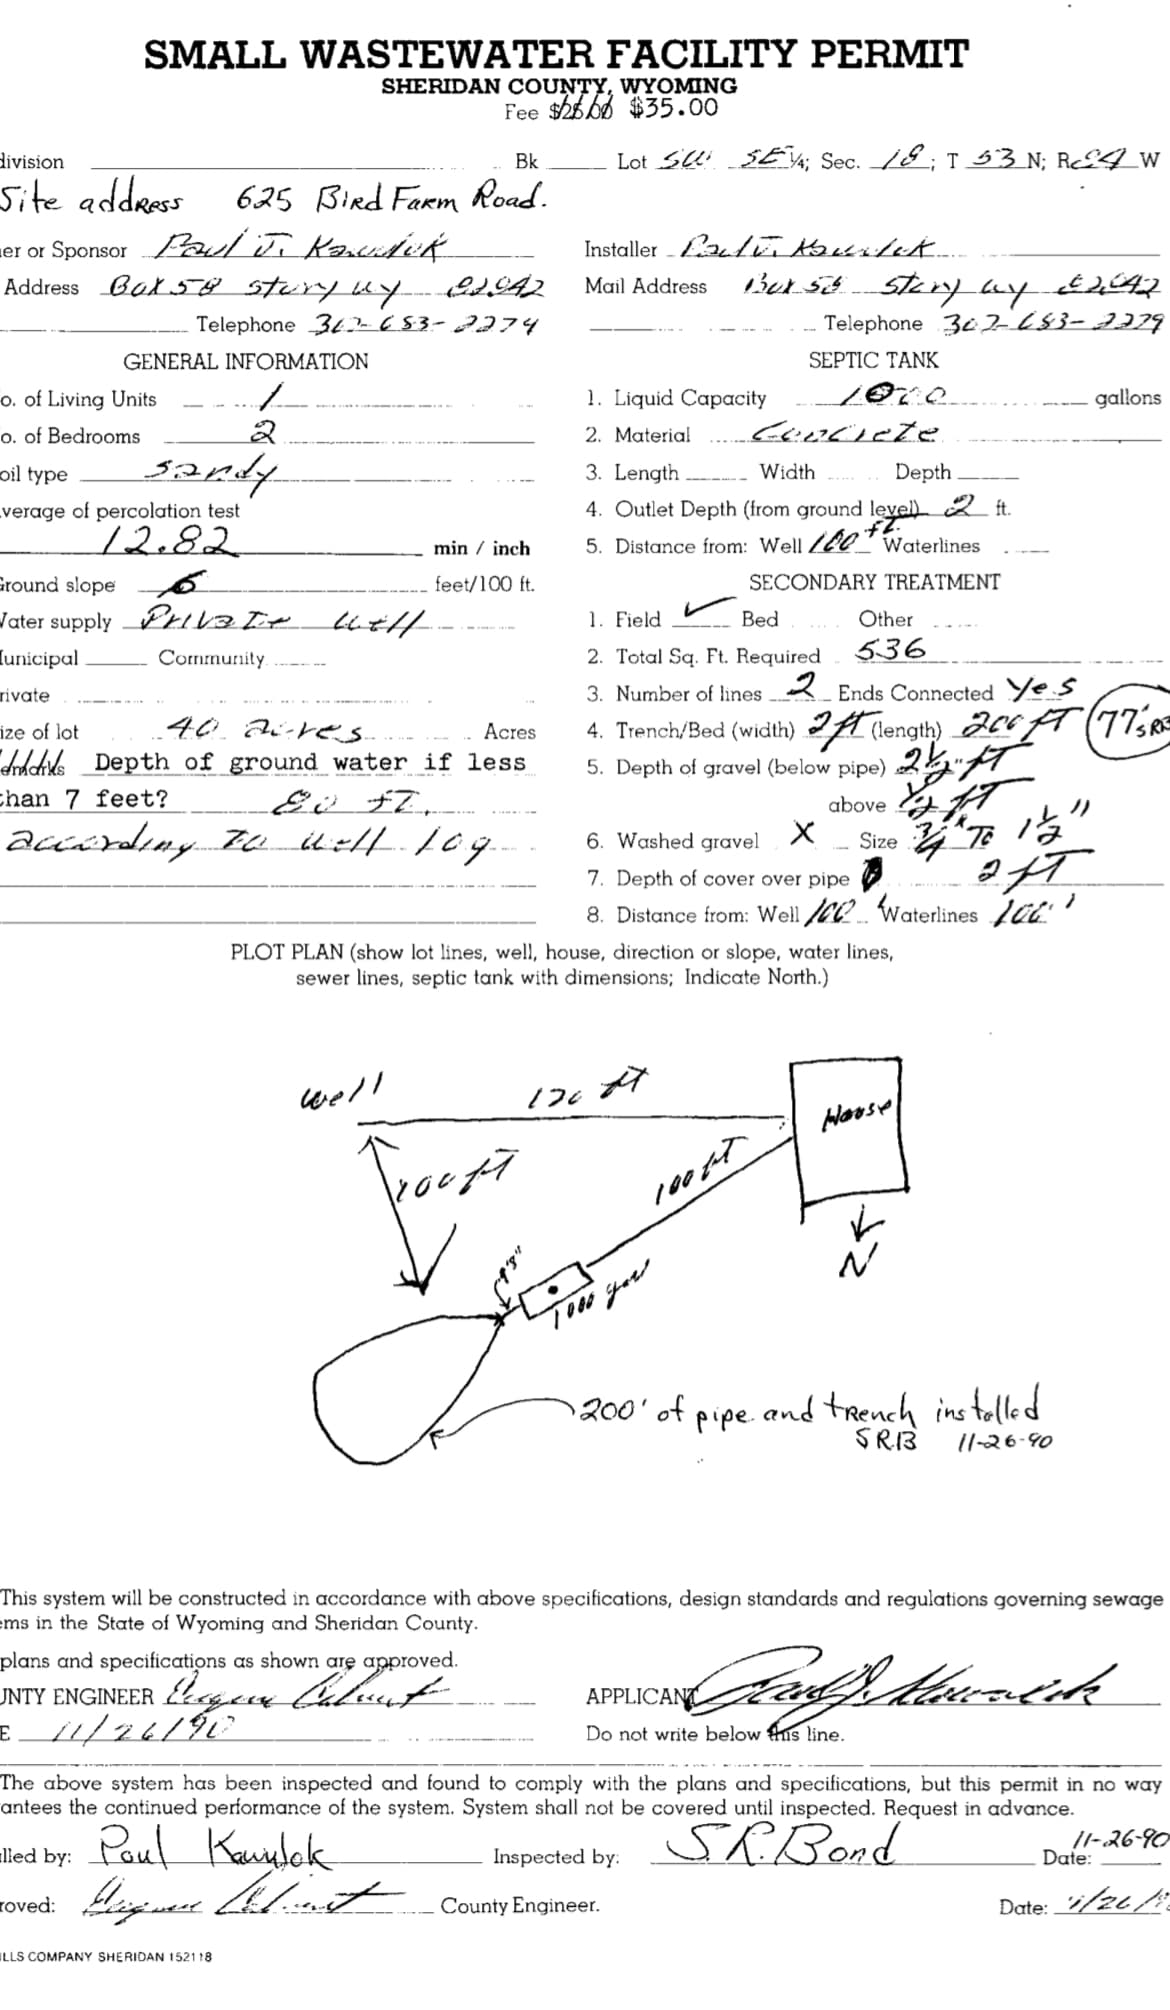 SMALL WASTEWATER FACILITY PERMIT
SHERIDAN COUNTY, WYOMING
Fee $35.00
division Bk Lot SW SE ¼; Sec. 18; T 53 N; R 84 W
Site address 625 Bird Farm Road.
er or Sponsor Paul J. Kawulok Installer Paul J. Kawulok
Address Box 58 story wy 82842 Mail Address Box 58 story wy 82842
Telephone 307-683-2274 Telephone 307-683-2279
GENERAL INFORMATION SEPTIC TANK
o. of Living Units 1 1. Liquid Capacity 1000 gallons
o. of Bedrooms 2 2. Material Concrete
oil type sandy 3. Length Width Depth
verage of percolation test 4. Outlet Depth (from ground level) 2 ft.
12.82 min / inch 5. Distance from: Well 100 ft. Waterlines
Ground slope 6 feet/100 ft. SECONDARY TREATMENT
Water supply Private well 1. Field ✓ Bed Other
Municipal Community 2. Total Sq. Ft. Required 536
rivate 3. Number of lines 2 Ends Connected Yes
ize of lot 40 acres Acres 4. Trench/Bed (width) 2 ft (length) 200 ft 77'
Depth of ground water if less 5. Depth of gravel (below pipe) 2½" ft
than 7 feet? 80 ft. above ½ ft
according to well log 6. Washed gravel X Size ¾" To 1½"
7. Depth of cover over pipe 2 ft
8. Distance from: Well 100' Waterlines 100'
PLOT PLAN (show lot lines, well, house, direction or slope, water lines,
sewer lines, septic tank with dimensions; Indicate North.)
well 120 ft House
100 ft 100 ft
N
1000
200' of pipe and trench installed
SRB 11-26-90
This system will be constructed in accordance with above specifications, design standards and regulations governing sewage
ems in the State of Wyoming and Sheridan County.
plans and specifications as shown are approved.
UNTY ENGINEER APPLICANT Paul J. Kawulok
E 11/26/90 Do not write below this line.
The above system has been inspected and found to comply with the plans and specifications, but this permit in no way
antees the continued performance of the system. System shall not be covered until inspected. Request in advance.
lled by: Paul Kawulok Inspected by: S.R. Bond Date: 11-26-90
roved: County Engineer. Date: 11/26/9
ILLS COMPANY SHERIDAN 152118